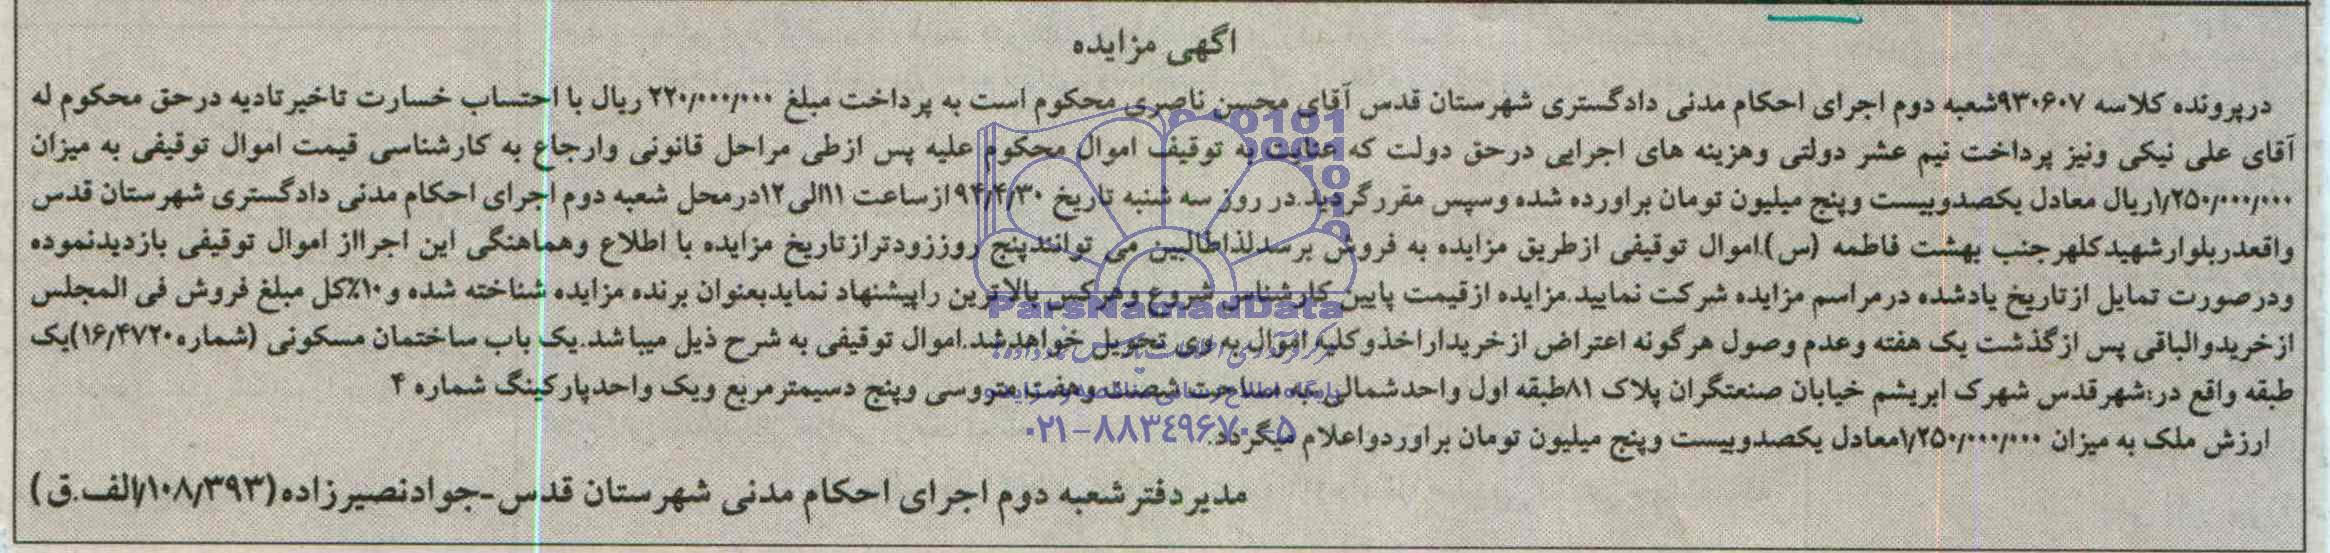 آگهی مزایده
درپرونده کلاسه ۹۳۰۶۰۷شعبه دوم اجرای احکام مدنی دادگستری شهرستان قدس آقای محسن ناصری محکوم است به پرداخت مبلغ ۲۲۰/۰۰۰/۰۰۰ ریال با احتساب خسارت تاخیرتادیه درحق محکوم له
آقای علی نیکی ونیز پرداخت نیم عشر دولتی وهزینه های اجرایی درحق دولت که عنایت به توقیف اموال محکوم علیه پس ازطی مراحل قانونی وارجاع به کارشناسی قیمت اموال توقیفی به میزان
۱/۲۵۰/۰۰۰/۰۰۰ریال معادل یکصدوبیست وپنج میلیون تومان براورده شده وسپس مقررگردید.در روز سه شنبه تاریخ ۹۴/۴/۳۰ازساعت ۱۱الی۱۲درمحل شعبه دوم اجرای احکام مدنی دادگستری شهرستان قدس
واقعدربلوارشهیدکلهرجنب بهشت فاطمه (س).اموال توقیفی ازطریق مزایده به فروش برسدلذاطالبین می توانندپنج روززودترازتاریخ مزایده با اطلاع وهماهنگی این اجرااز اموال توقیفی بازدیدنموده
ودرصورت تمایل ازتاریخ یادشده درمراسم مزایده شرکت نمایید.مزایده ازقیمت پایین کارشناس شروع وهرکس بالاترین راپیشنهاد نمایدبعنوان برنده مزایده شناخته شده و۱۰٪کل مبلغ فروش فی المجلس
ازخریدوالباقی پس ازگذشت یک هفته وعدم وصول هرگونه اعتراض ازخریداراخذوکلیه اموال به وی تحویل خواهدشد.اموال توقیفی به شرح ذیل میباشد.یک باب ساختمان مسکونی (شماره۱۶/۴۷۲۰)یک
طبقه واقع در:شهرقدس شهرک ابریشم خیابان صنعتگران پلاک ۸۱طبقه اول واحدشمالی به مساحت شصت وهفت متروسی وپنج دسیمترمربع ویک واحدپارکینگ شماره ۴
ارزش ملک به میزان ۱/۲۵۰/۰۰۰/۰۰۰معادل یکصدوبیست وپنج میلیون تومان براوردواعلام میگردد.
مدیردفترشعبه دوم اجرای احکام مدنی شهرستان قدس-جوادنصیرزاده(۱/۱۰۸/۳۹۳الف.ق)
ParsNamadData
۰۲۱-۸۸۳۴۹۶۷۰-۵